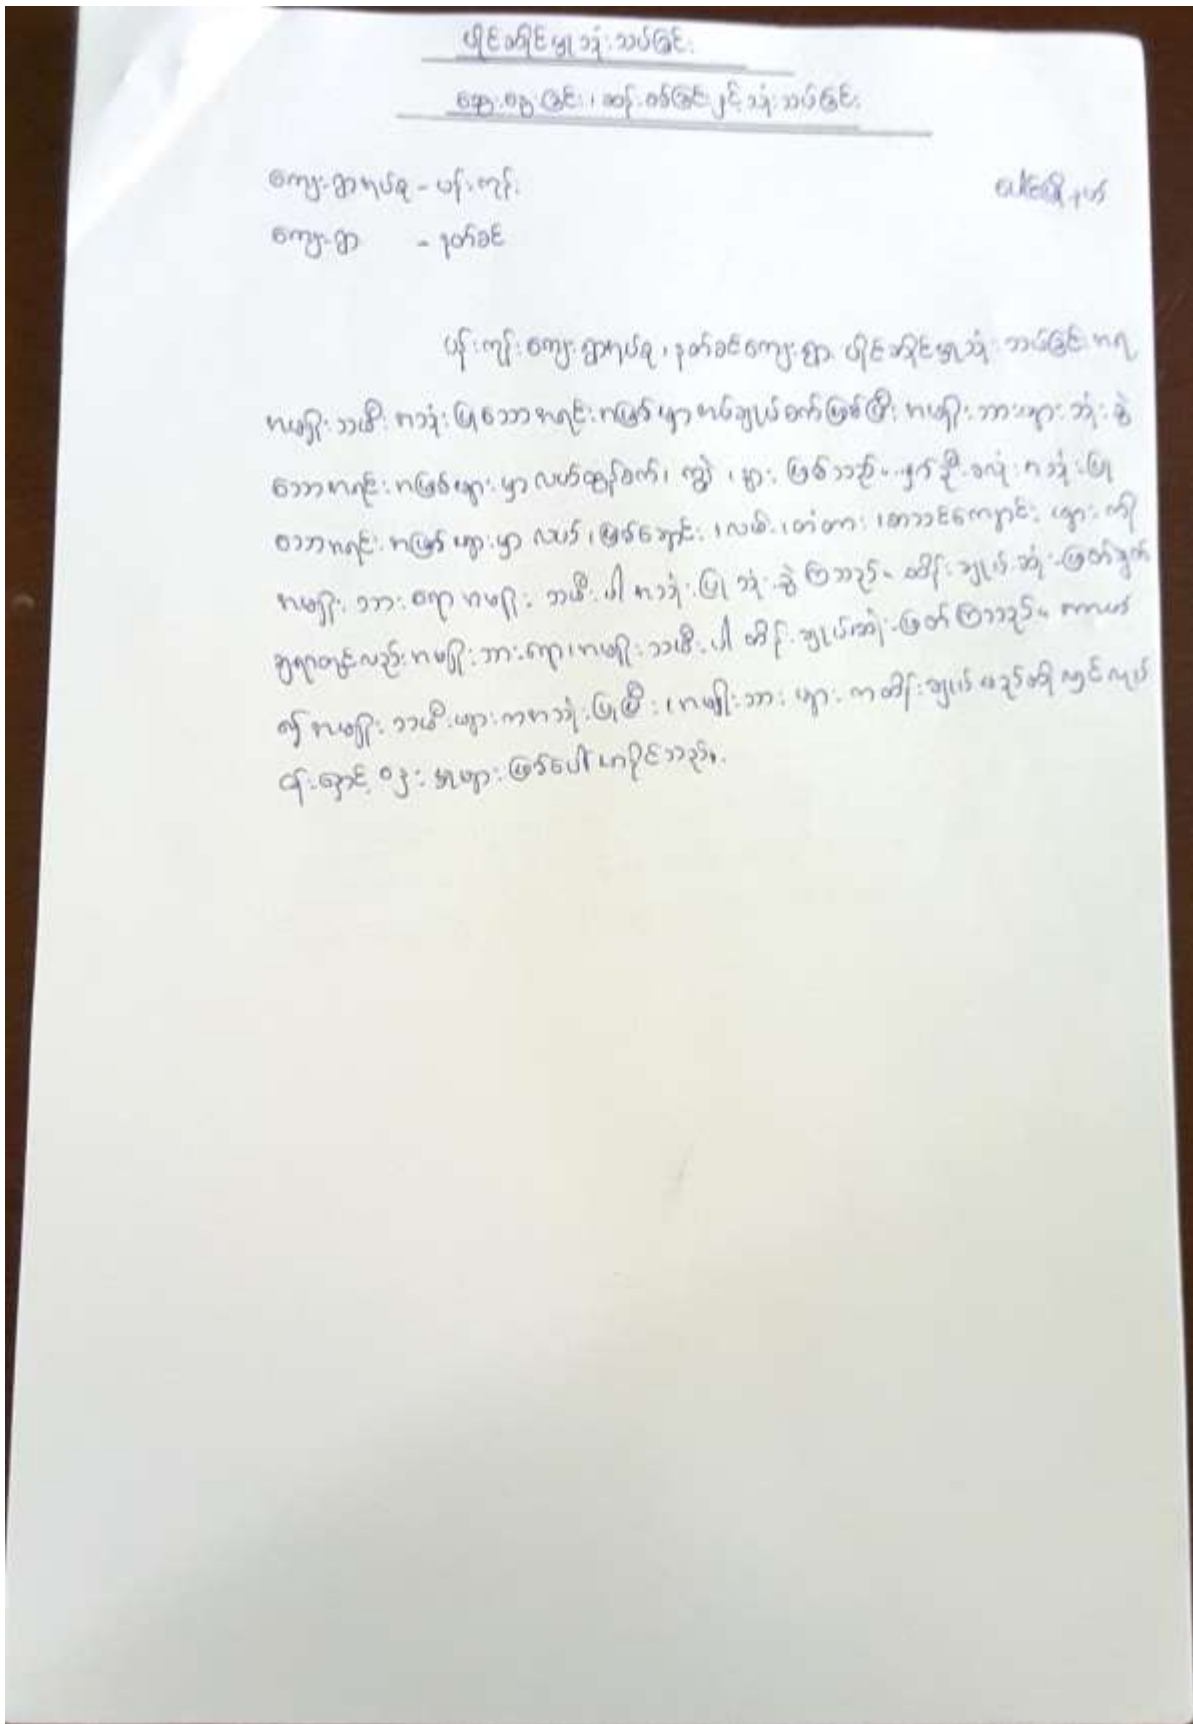 ပိုင်ဆိုင်မှုသုံးသပ်ခြင်း
ဆွေးနွေးခြင်း၊ ဆန်းစစ်ခြင်းနှင့်သုံးသပ်ခြင်း
ကျေးရွာအုပ်စု - ပန်းကုန်း ပေါင်မြို့နယ်
ကျေးရွာ - နတ်ခင်
ပန်းကုန်းကျေးရွာအုပ်စု၊ နတ်ခင်ကျေးရွာ ပိုင်ဆိုင်မှုသုံးသပ်ခြင်းအရ
အမျိုးသမီးအသုံးပြုသောအရင်းအမြစ်မှာအပ်ချုပ်စက်ဖြစ်ပြီး အမျိုးသားများသုံးစွဲ
သောအရင်းအမြစ်များမှာလယ်ထွန်စက်၊ ကျွဲ၊ နွားဖြစ်သည်။ နှစ်ဦးစလုံးအသုံးပြု
သောအရင်းအမြစ်များမှာ လယ်၊ မြစ်ချောင်း၊ လမ်း၊ တံတား၊ စာသင်ကျောင်းများကို
အမျိုးသားရောအမျိုးသမီးပါအသုံးပြုသုံးစွဲကြသည်။ ထိန်းချုပ်ဆုံးဖြတ်ချက်
ချရာတွင်လည်းအမျိုးသားရော၊ အမျိုးသမီးပါထိန်းချုပ်ဆုံးဖြတ်ကြသည်။ အကယ်
၍ အမျိုးသမီးများကအသုံးပြုပြီး၊ အမျိုးသားများကထိန်းချုပ်မည်ဆိုလျှင်လုပ်
ငန်းနှောင့်နှေးမှုများဖြစ်ပေါ်လာနိုင်သည်။